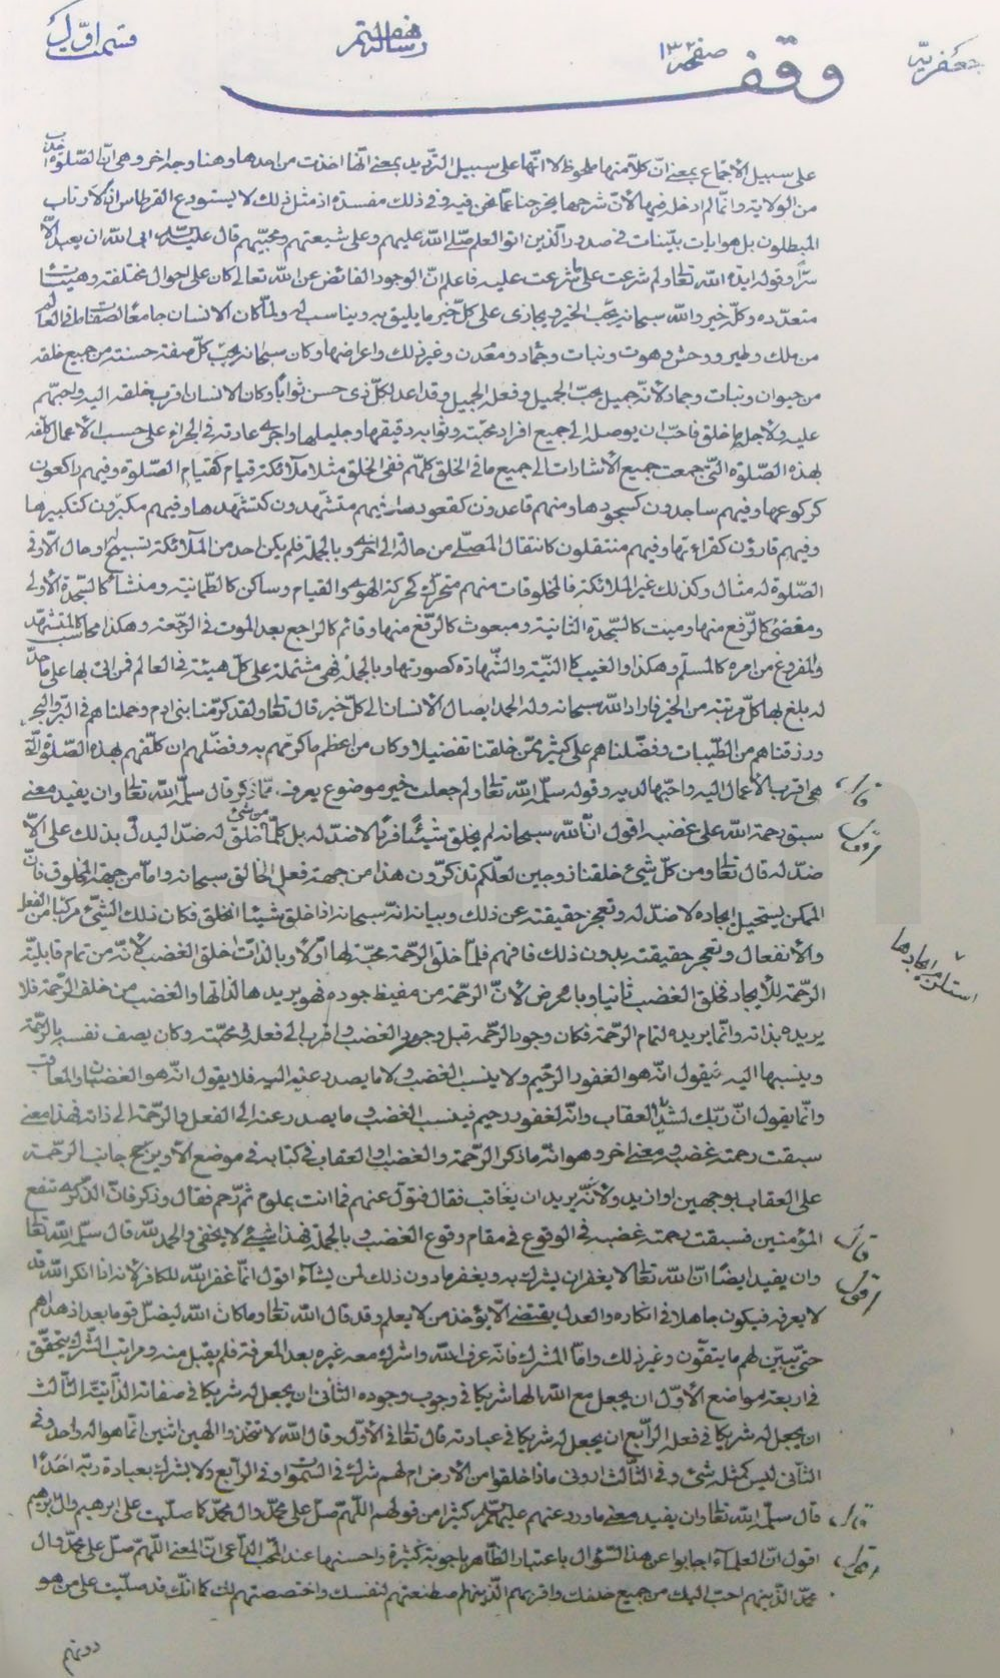 جعفريّه
صفحه ١٣٢
رساله نهم
قسمت اوّل
وقف
على سبيل الاجتماع بمعنى انّ كلّا منها ملحوظ لا انّها على سبيل الترديد بمعنى انّها اخذت من احدها وهنا وجه اخر وهى انّ الصّلوة
من الولاية وانّما لم ادخله فيها لانّ شرحها يخرجنا عمّا نحن فيه وفى ذلك مفسدة اذ مثل ذلك لا يستودع القرطاس اذاً لارتاب
المبطلون بل هو ايات بيّنات فى صدور الّذين اتوا العلم صلّى الله عليهم وعلى شيعتهم ومحبّيهم قال عليه السّلام ابى الله ان يعبد الّا
سرّاً وقوله ايّده الله تعالى ولم شرعت على ما شرعت عليه فاعلم انّ الوجود الفائض عن الله تعالى كان على احوال مختلفة وهيئات
متعدّده وكلّ خير والله سبحانه يحبّ الخير ويجازى على كلّ خير ما يليق به ويناسب له ولمّا كان الانسان جامعاً لصفات ما فى العالم
من ملك وطير ووحش وهوت ونبات وجماد ومعدن وغير ذلك واعراضها وكان سبحانه يحبّ كلّ صفة حسنة من جميع خلقه
من حيوان ونبات وجماد لانّه جميل يحبّ الجميل وفعله الجميل وقد اعد لكلّ ذى حسن ثواباً وكان الانسان اقرب خلقه اليه واحبّهم
عليه ولاجله ما خلق فاحبّ ان يوصله الى جميع افراد محبّته وثوابه دقيقها وجليلها واجرى عادته فى الجزاء على حسب الاعمال كلّفه
بهذه الصّلوة الّتى جمعت جميع الاشارات الى جميع ما فى الخلق كلّهم ففى الخلق مثلا ملآئكة قيام كقيام الصّلوة وفيهم راكعون
كركوعها وفيهم ساجدون كسجودها ومنهم قاعدون كقعودها وفيهم متشهّدون كتشهّدها وفيهم مكبّرون كتكبيرها
وفيهم قارؤن كقراءتها وفيهم منتقلون كانتقال المصلّى من حالة الى اخرى وبالجملة فلم يكن احد من الملآئكة تسبيح او حال الّا وفى
الصّلوة له مثال وكذلك غير الملائكة فالمخلوقات منهم متحرّك كحركة الهوى والقيام وساكن كالطّمانية ومنشأ كالسّجدة الاولى
ومغضىً كالرّفع منها وميت كالسّجدة الثّانية ومبعوث كالرّفع منها وقائم كالراجع بعد الموت فى الرّجعة وهكذا محاسب كالمتشهّد
والمفروغ من امره كالمسلّم وهكذا والغيب كالنيّة والشّهادة كصورتها وبالجملة فهى مشتملة على كلّ هيئة فى العالم فمن اتى بها على ما حدّ
له بلغ بها كلّ مرتبة من الخير فاراد الله سبحانه وله الحمد ايصال الانسان الى كلّ خير قال تعالى ولقد كرّمنا بنى ادم وحملناهم فى البرّ والبحر
ورزقناهم من الطّيبات وفضّلناهم على كثير ممّن خلقنا تفضيلا وكان من اعظم ما كرّمهم به وفضّلهم ان كلّفهم بهذه الصّلوة الّتى
هى اقرب الاعمال اليه واحبّها لديه وقوله سلّمه الله تعالى ولم جعلت خير موضوع يعرف ممّا ذكر قال سلّمه الله تعالى وان يفيد معنى
سبق رحمة الله على غضبه اقول انّ الله سبحانه لم يخلق شيئاً فرداً لا ضدّ له بل كلّما خلق من شئ خلق له ضدّ اليدلّ بذلك على الّا
ضدّ له قال تعالى ومن كلّ شئ خلقنا زوجين لعلّكم تذكّرون هذا من جهة فعل الخالق سبحانه وامّا من جهة المخلوق فانّ
الممكن يستحيل ايجاده لا ضدّ له وتعجز حقيقته عن ذلك وبيانه انّه سبحانه اذا خلق شيئا انخلق فكان ذلك الشّئ مركّباً من الفعل
والانفعال وتعجز حقيقته بدون ذلك فافهم فلمّا خلق الرّحمة محبّة لها اوّلا وبالذّات خلق الغضب لانّه من تمام قابليّة
الرّحمة للايجاد فخلق الغضب ثانيا وبالعرض لانّ الرّحمة من مفيظ جوده فهو يريدها لذاتها والغضب من خلف الرّحمة فلا
يريده بذاته وانّما يريده لتمام الرّحمة فكان وجود الرّحمة قبل وجود الغضب واقرب الى فعله ومحبّته وكان يصف نفسه بالرّحمة
وينسبها اليه فيقول انّه هو الغفور الرّحيم ولا ينسب الغضب ولا ما يصدر عنه اليه فلا يقول انّه هو الغضبان والمعاقب
وانّما يقول انّ ربّك لشديد العقاب وانّه لغفور رحيم فينسب الغضب وما يصدر عنه الى الفعل والرّحمة الى ذاته فهذا معنى
سبقت رحمته غضبه ومعنى اخر وهو انّه ما ذكر الرّحمة والغضب والعقاب فى كتابه فى موضع الّا ويرجّح جانب الرّحمة
على العقاب بوجهين او ازيد ولانّه يريد ان يعاقب فقال فتولّ عنهم فما انت بملوم ثمّ رحم فقال وذكّر فانّ الذّكرى تنفع
المؤمنين فسبقت رحمته غضبه فى الوقوع فى مقام وقوع الغضب وبالجملة فهذا شئ لا يخفى والحمد لله قال سلّمه الله تعالى
وان يفيد ايضًا انّ الله تعالى لا يغفر ان يشرك به ويغفر ما دون ذلك لمن يشآء اقول انّما غفر الله للكافر لانه اذا انكر الله قد
لا يعرفه فيكون جاهلا فى انكاره والعدل يقتضى الّا يؤخذ من لا يعلم وقد قال الله تعالى وما كان الله ليضلّ قوما بعد اذ هداهم
حتّى يبيّن لهم ما يتّقون وغير ذلك وامّا المشرك فانّه عرف الله واشرك معه غيره بعد المعرفة فلم يقبل منه ومراتب الشّرك يتحقّق
فى اربعة مواضع الاوّل ان يجعل مع الله الها شريكا فى وجوب وجوده الثّانى ان يجعل له شريكا فى صفاته الذّاتيّة الثّالث
ان يجعل له شريكا فى فعله الرّابع ان يجعل له شريكا فى عبادته قال تعالى فى الاوّل وقال الله لا تتّخذوا الهين اثنين انّما هو اله واحد وفى
الثّانى ليس كمثله شئ وفى الثّالث ارونى ماذا خلقوا من الارض ام لهم شرك فى السّموات وفى الرّابع ولا يشرك بعبادة ربّه احَدًا
قال سلّمه الله تعالى وان يفيد معنى ما ورد عنهم عليهم السّلام كثيرا من قولهم اللّهمّ صلّ على محمّد وال محمّد كما صلّيت على ابرهيم وال ابرهيم
اقول انّ العلمآء اجابوا عن هذا السّؤال باعتبار الظّاهر باجوبة كثيرة واحسنها عند المحبّ الدّاعى انّ المعنى اللّهمّ صلّ على محمّد وال
محمّد الّذينهم احبّ اليك من جميع خلقك واقربهم الّذينهم اصطنعتهم لنفسك واختصصتهم لك كما انّك قد صلّيت على من هو
قال
اقول
استلزم ايجادها
قال
اقول
قال
اقول
دونهم